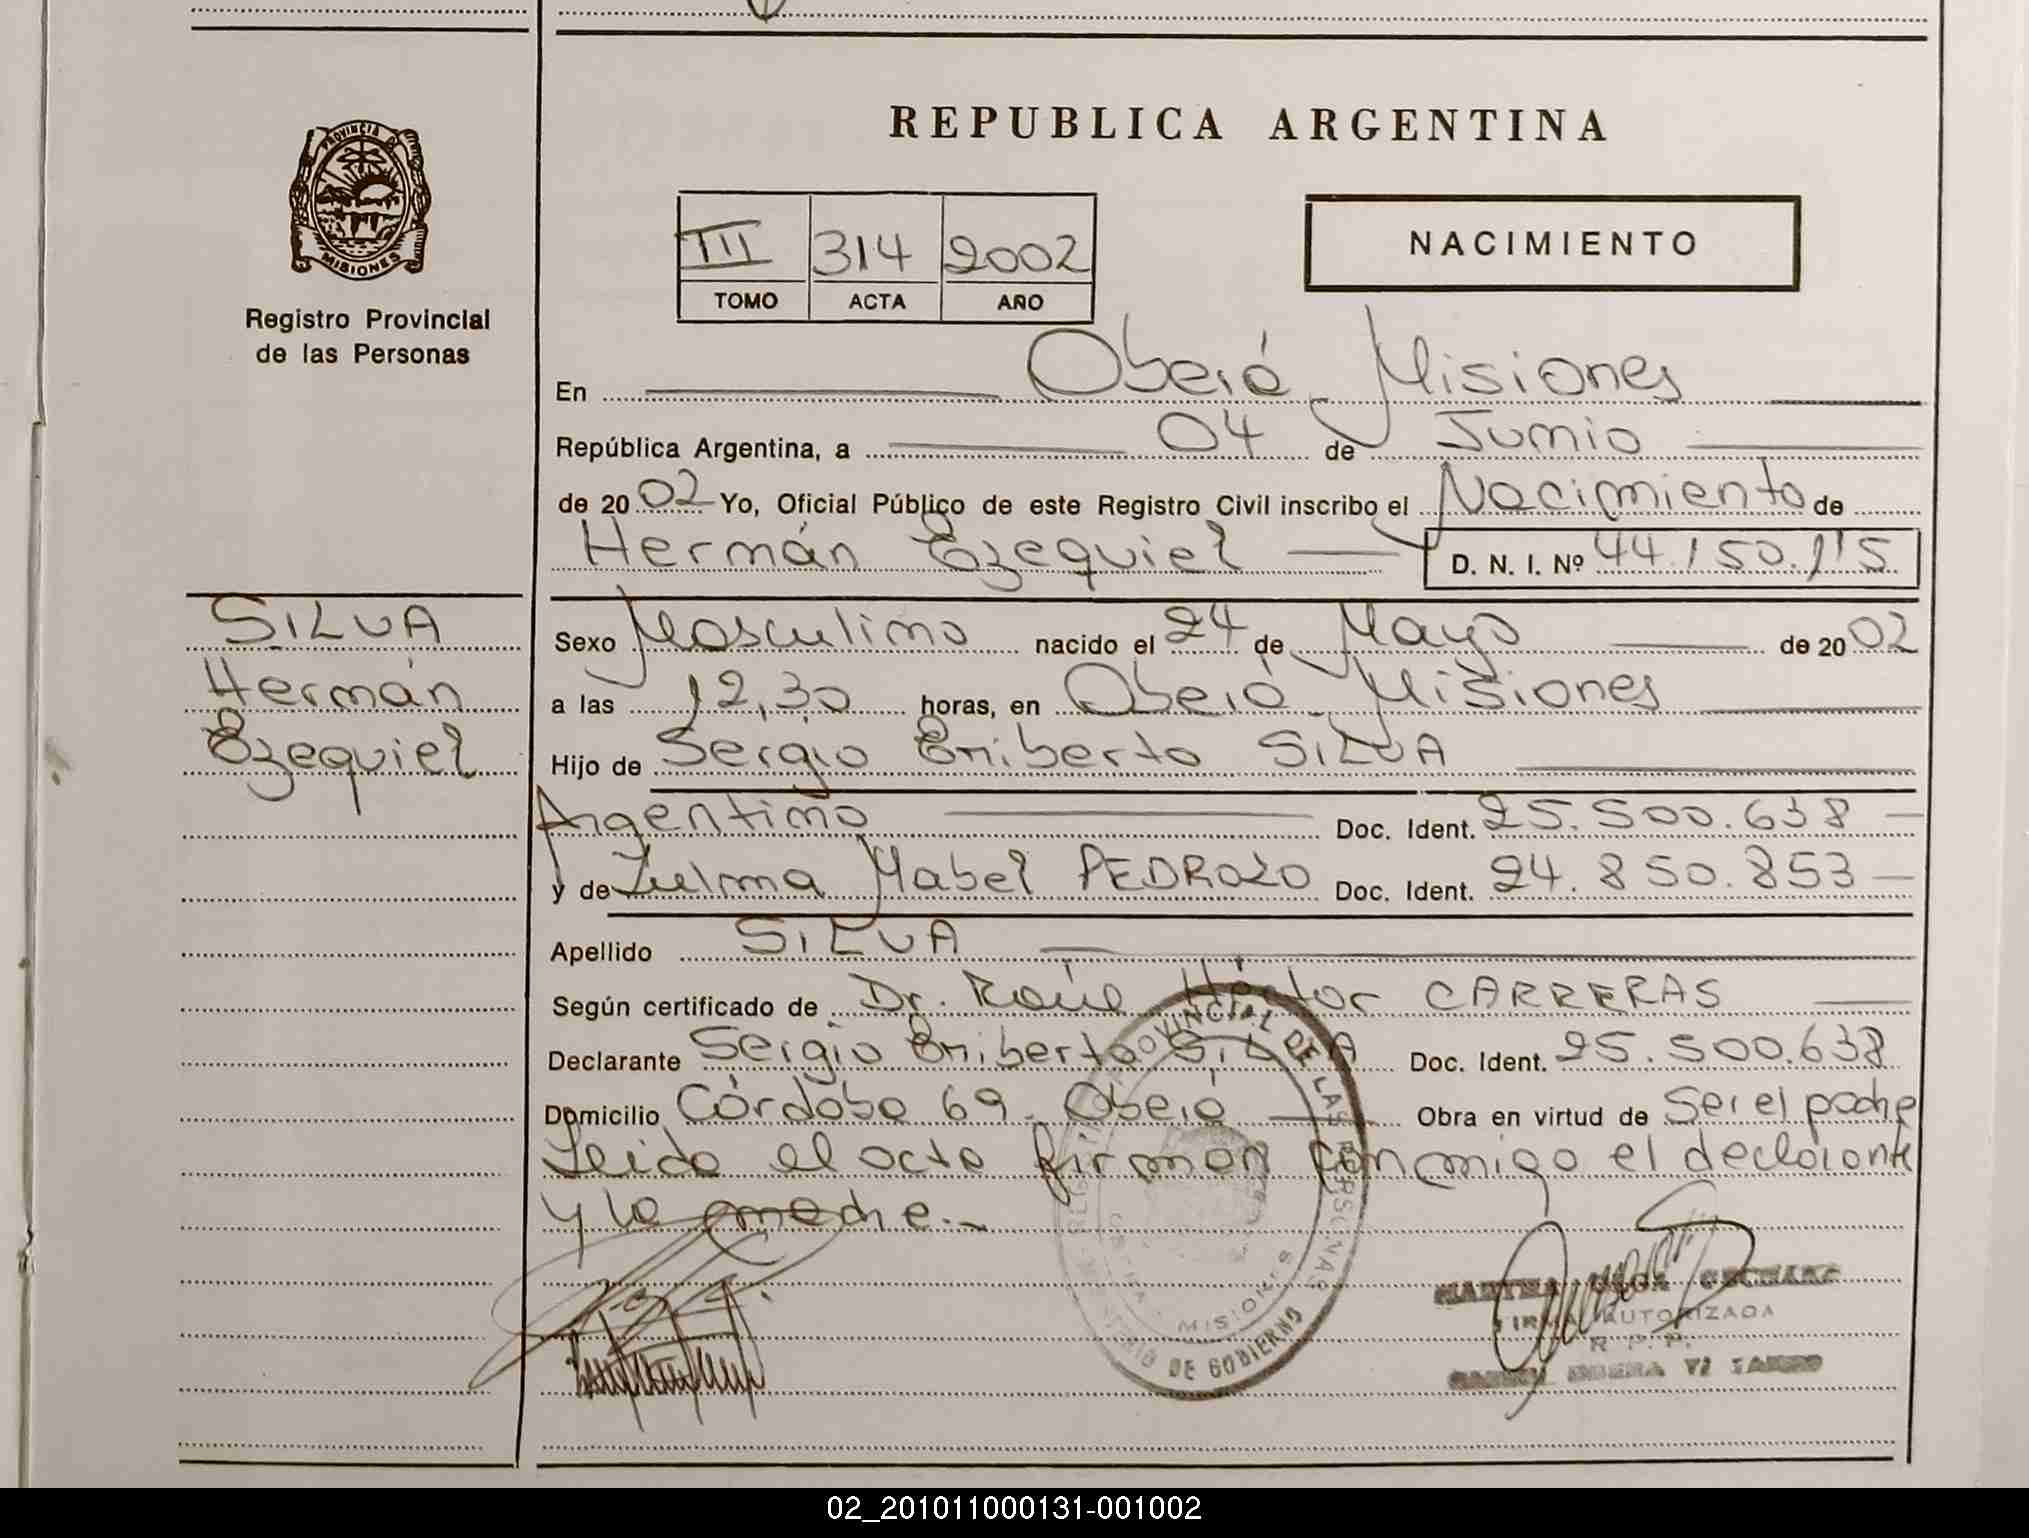 REPUBLICA ARGENTINA
PROVINCIA DE
MISIONES
Registro Provincial
de las Personas
III 314 2002
TOMO ACTA AÑO
NACIMIENTO
En Oberá Misiones
República Argentina, a 04 de Junio
de 2002 Yo, Oficial Público de este Registro Civil inscribo el Nacimiento de
Hermán Ezequiel D. N. I. Nº 44.150.115
SILVA
Hermán
Ezequiel
Sexo Masculino nacido el 24 de Mayo de 2002
a las 12,30 horas, en Oberá Misiones
Hijo de Sergio Eriberto SILVA
Argentino Doc. Ident. 25.500.638
y de Zulma Mabel PEDROZO Doc. Ident. 24.850.853
Apellido SILVA
Según certificado de Dr. Raúl Héctor CARRERAS
Declarante Sergio Eriberto SILVA Doc. Ident. 25.500.638
Domicilio Córdoba 69. Oberá Obra en virtud de Ser el padre
Leida el acta firman conmigo el declarante
y la madre.-
PROVINCIAL DE LAS PERSONAS
MISIONES
DE GOBIERNO
FIRMA AUTORIZADA
R. P. P.
02_201011000131-001002